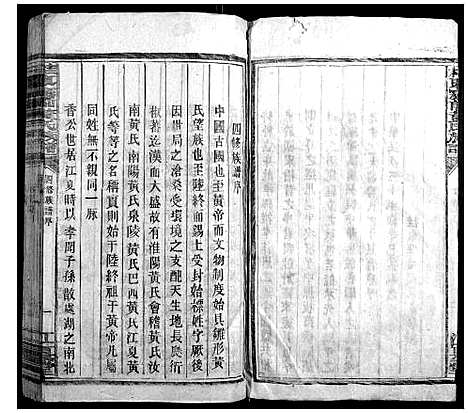 四修族譜序
中國古國也至黃帝而文物制度始具雛形黃
氏望族也至陸終而錫土受封始標姓字厥後
因世局之滄桑受環境之支配天生地長庶衍
椒蕃迄漢而大盛故有淮陽黃氏會稽黃氏汝
南黃氏南陽黃氏泉陵黃氏巴西黃氏江夏黃
氏等等之名稽實則始于陸終祖于黃帝凡屬
同姓無不親同一脉
香公世居江夏時以孝聞子孫散處湖之南北
四修族譜序
一